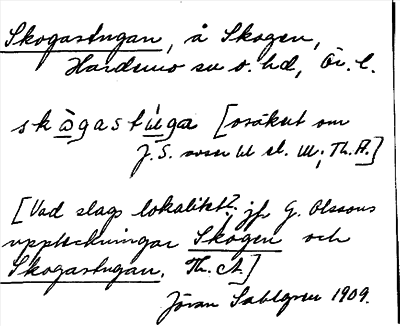 Skogastugan, å Skogen,
Hardemo sn o. hd, Ör. l.
skògastu̍ga [osäkert om
J.S. som u el. ɯ, Th. A.]
[Vad slags lokalitet?, jfr G. Olssons
uppteckningar Skogen och
Skogastugan. Th. A.]
Jöran Sahlgren 1909.